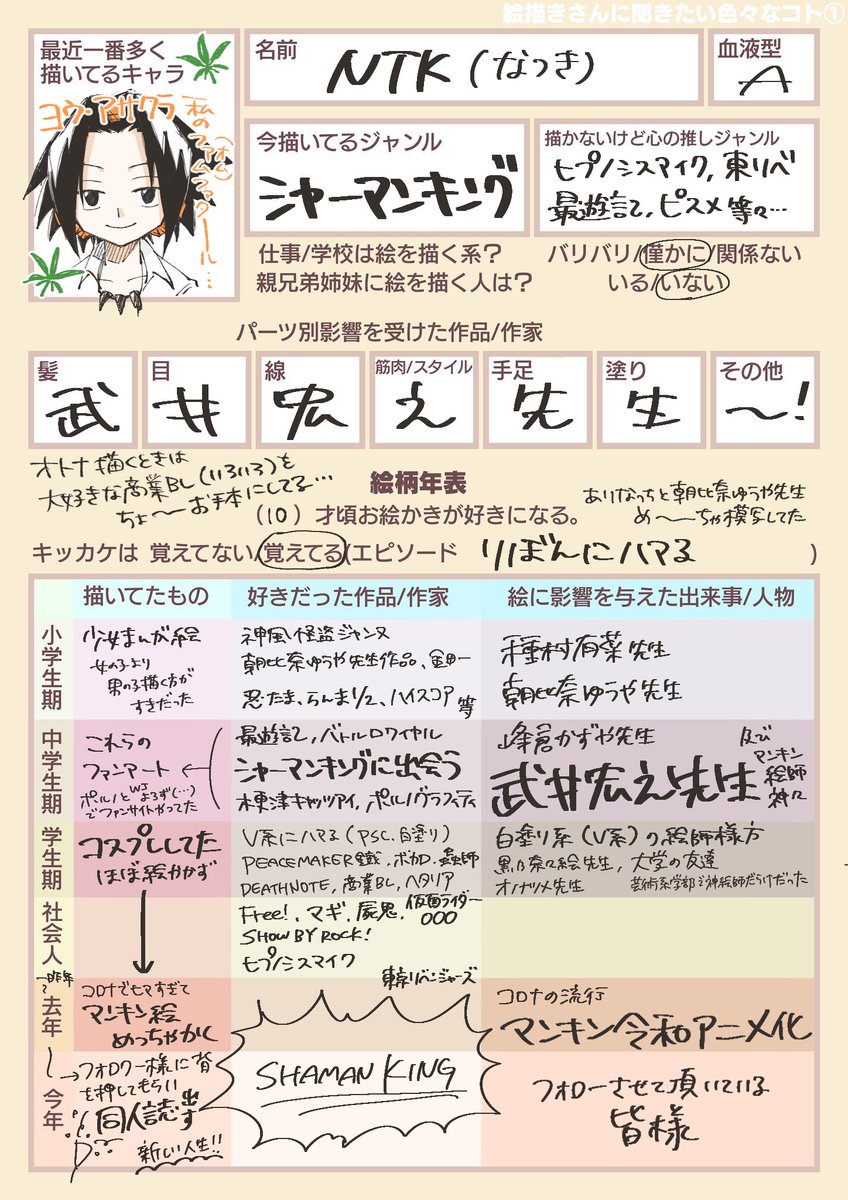 絵描きさんに聞きたい色々なコト①
最近一番多く
描いてるキャラ
ヨウ・アサクラ
私の(オム)ファムファタール…
名前
NTK (なつき)
血液型
A
今描いてるジャンル
シャーマンキング
描かないけど心の推しジャンル
ヒプノシスマイク, 東リベ
最遊記, ピスメ 等々…
仕事/学校は絵を描く系? バリバリ/僅かに/関係ない
親兄弟姉妹に絵を描く人は? いる/いない
パーツ別影響を受けた作品/作家
髪 目 線 筋肉/スタイル 手足 塗り その他
武 井 宏 え 先 生 〜!
オトナ描くときは
大好きな商業BL(いろいろ)を
ちょ〜〜お手本にしてる…
絵柄年表
ありなっちと朝比奈ゆうや先生
め〜〜ちゃ模写してた
(10) 才頃お絵かきが好きになる。
キッカケは 覚えてない/覚えてる(エピソード りぼんにハマる )
描いてたもの 好きだった作品/作家 絵に影響を与えた出来事/人物
小学生期
少女まんが絵
女の子より
男の子描く方が
すきだった
神風怪盗ジャンヌ
朝比奈ゆうや先生作品、金田一
忍たま、らんま1/2、ハイスコア 等
種村有菜先生
朝比奈ゆうや先生
中学生期
これらの
ファンアート
ポルノとWJよろず(…)
でファンサイトやってた
最遊記, バトルロワイヤル
シャーマンキングに出会う
木更津キャッツアイ, ポルノグラフィティ
峰倉かずや先生
及び
武井宏え先生
マンキン
絵師
対々
学生期
コスプレしてた
ほぼ絵かかず
V系にハマる (PSC, 白塗り)
PEACEMAKER鐵, ボカロ, 蟲師
DEATHNOTE, 商業BL, ヘタリア
白塗り系(V系)の絵師様方
黒乃奈々絵先生, 大学の友達
オノナツメ先生 芸術系学部で神絵師だらけだった
社会人
Free!, マギ, 屍鬼, 仮面ライダー
OOO
SHOW BY ROCK!
ヒプノシスマイク
東京リベンジャーズ
一昨年?
去年
コロナでヒマすぎて
マンキン絵
めっちゃかく
コロナの流行
マンキン令和アニメ化
今年
フォロワー様に背
を押してもらい
同人誌出す
新しい人生!!
SHAMAN KING
フォローさせて頂いている
皆様